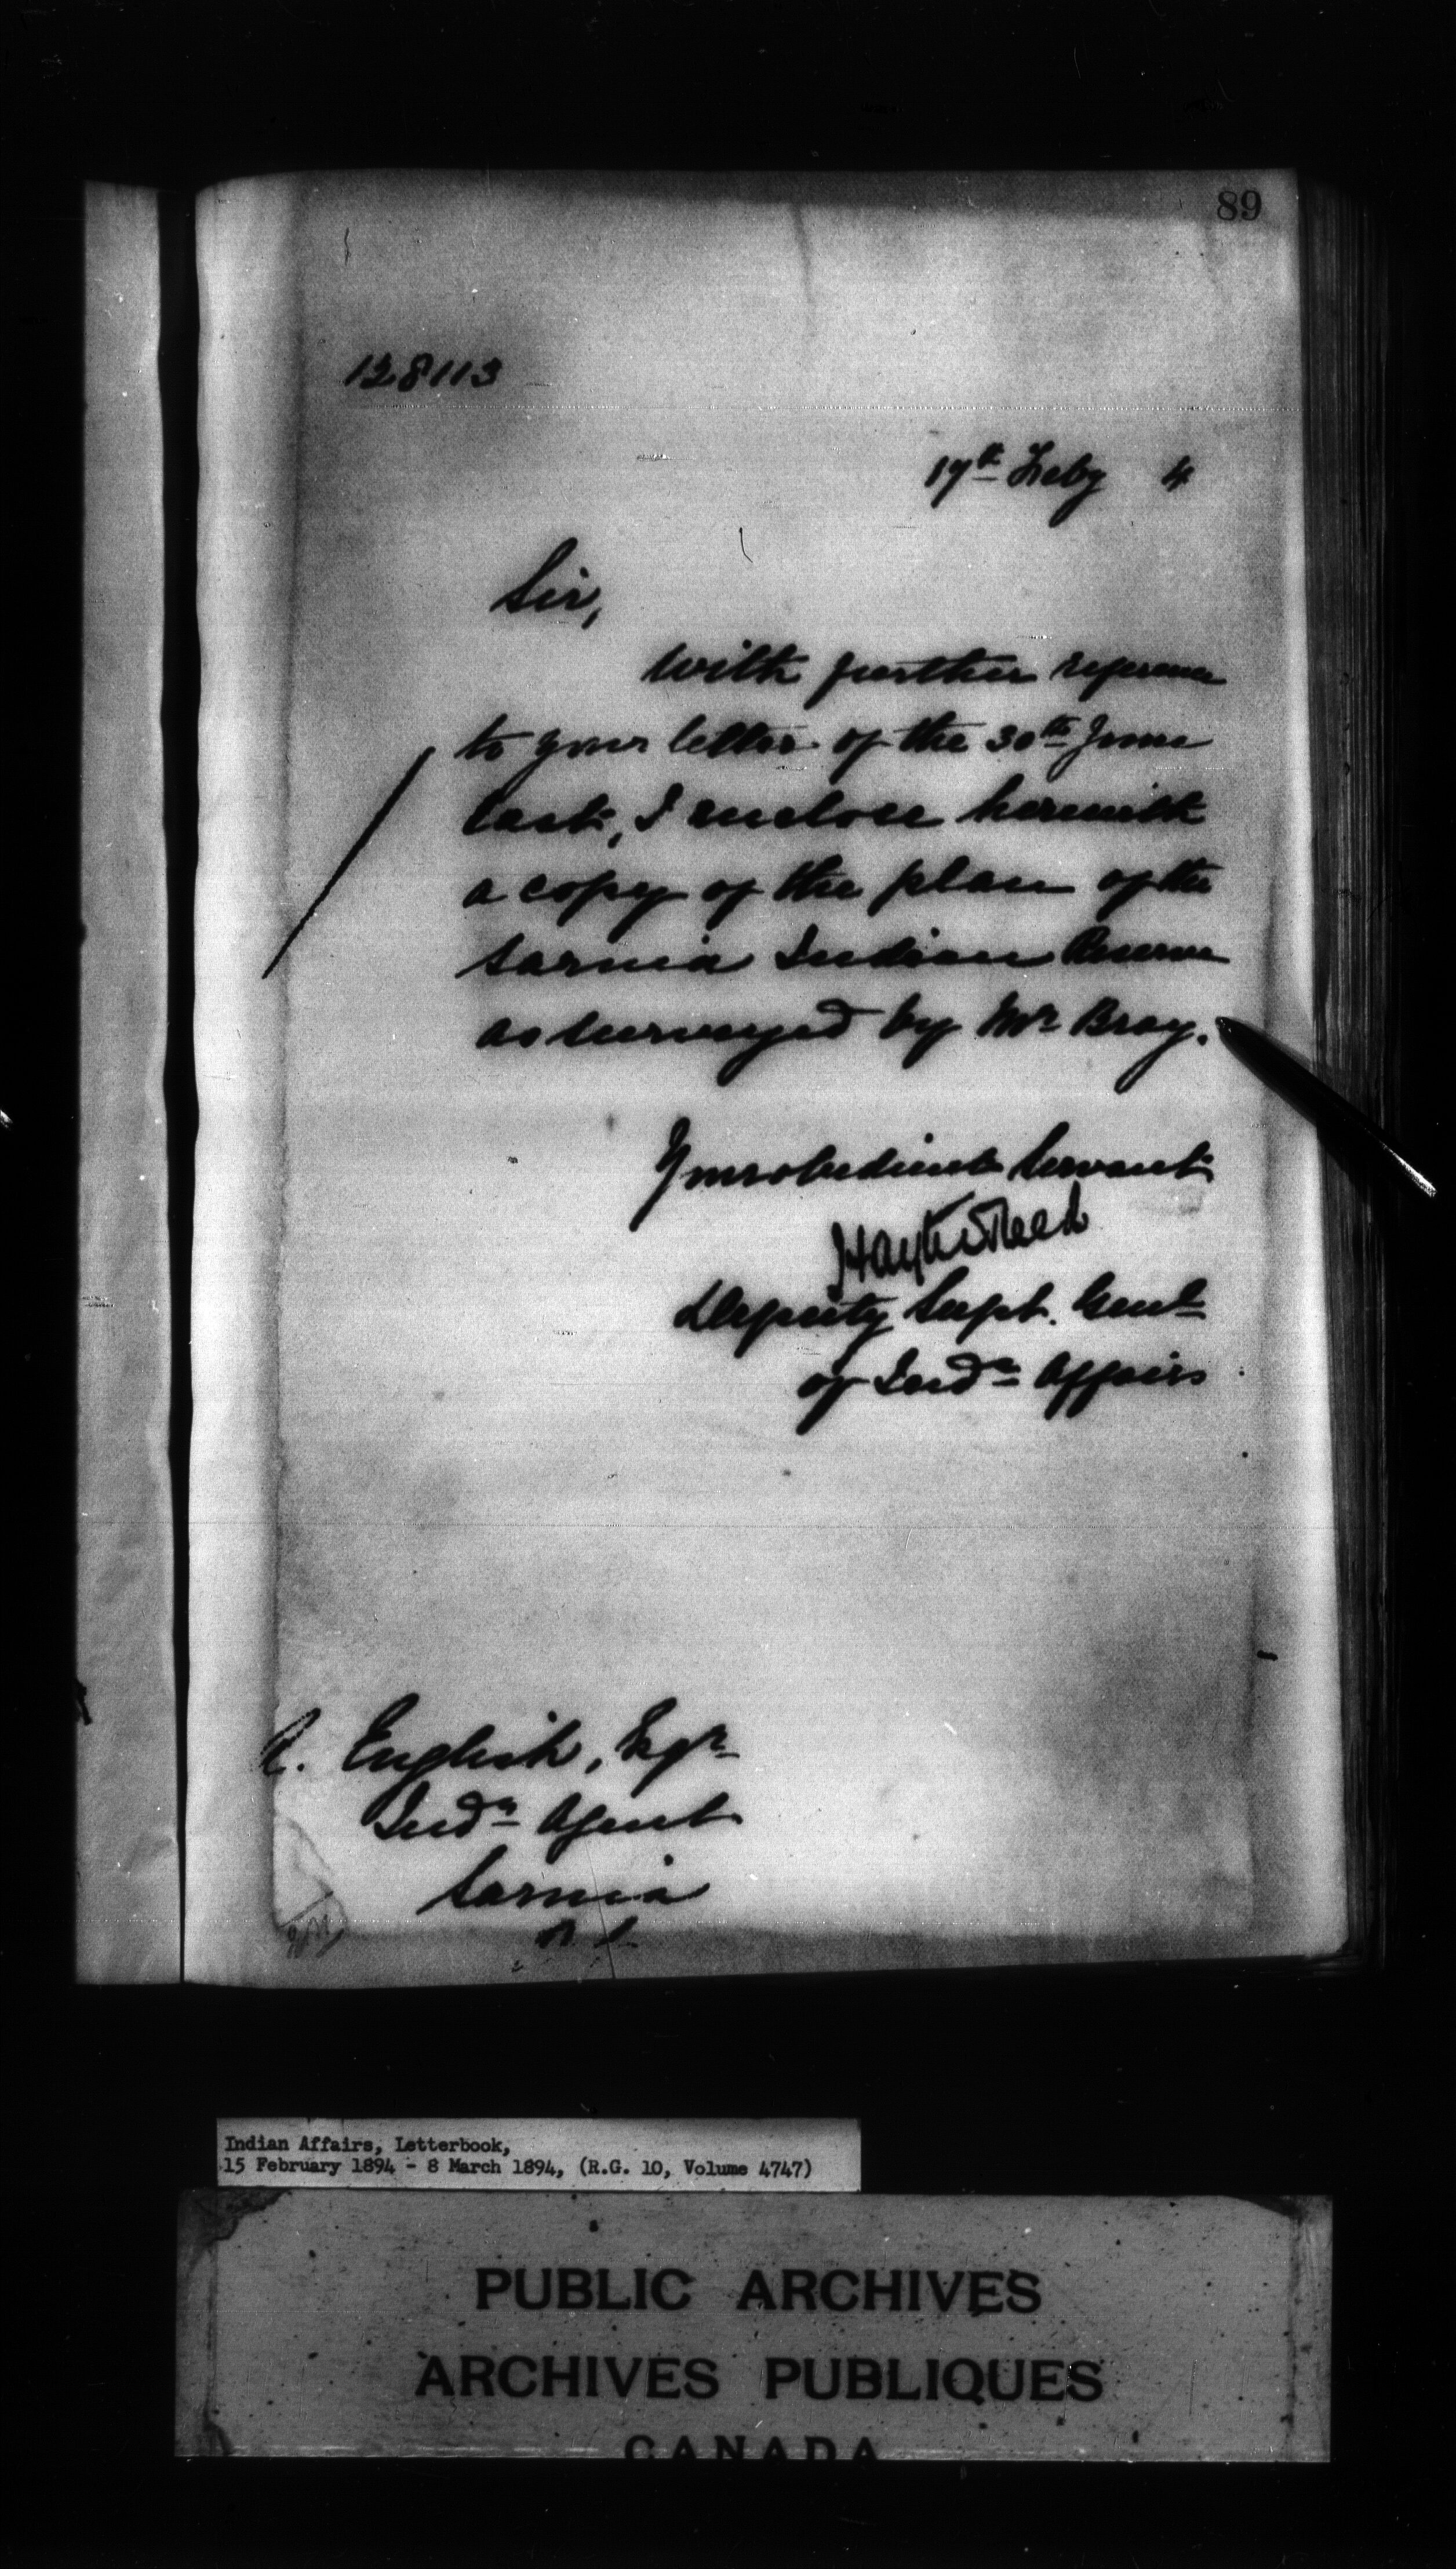 89
128113
17th Feby 4
Sir,
With further reference
to your letter of the 30th June
last, I enclose herewith
a copy of the plan of the
Sarnia Indian Reserve
as surveyed by Mr Bray.
Your obedient Servant
Hayter Reed
Deputy Supt. Genl
of Indn Affairs
A. English, Esqr
Indn Agent
Sarnia
Indian Affairs, Letterbook,
15 February 1894 - 8 March 1894, (R.G. 10, Volume 4747)
PUBLIC ARCHIVES
ARCHIVES PUBLIQUES
CANADA